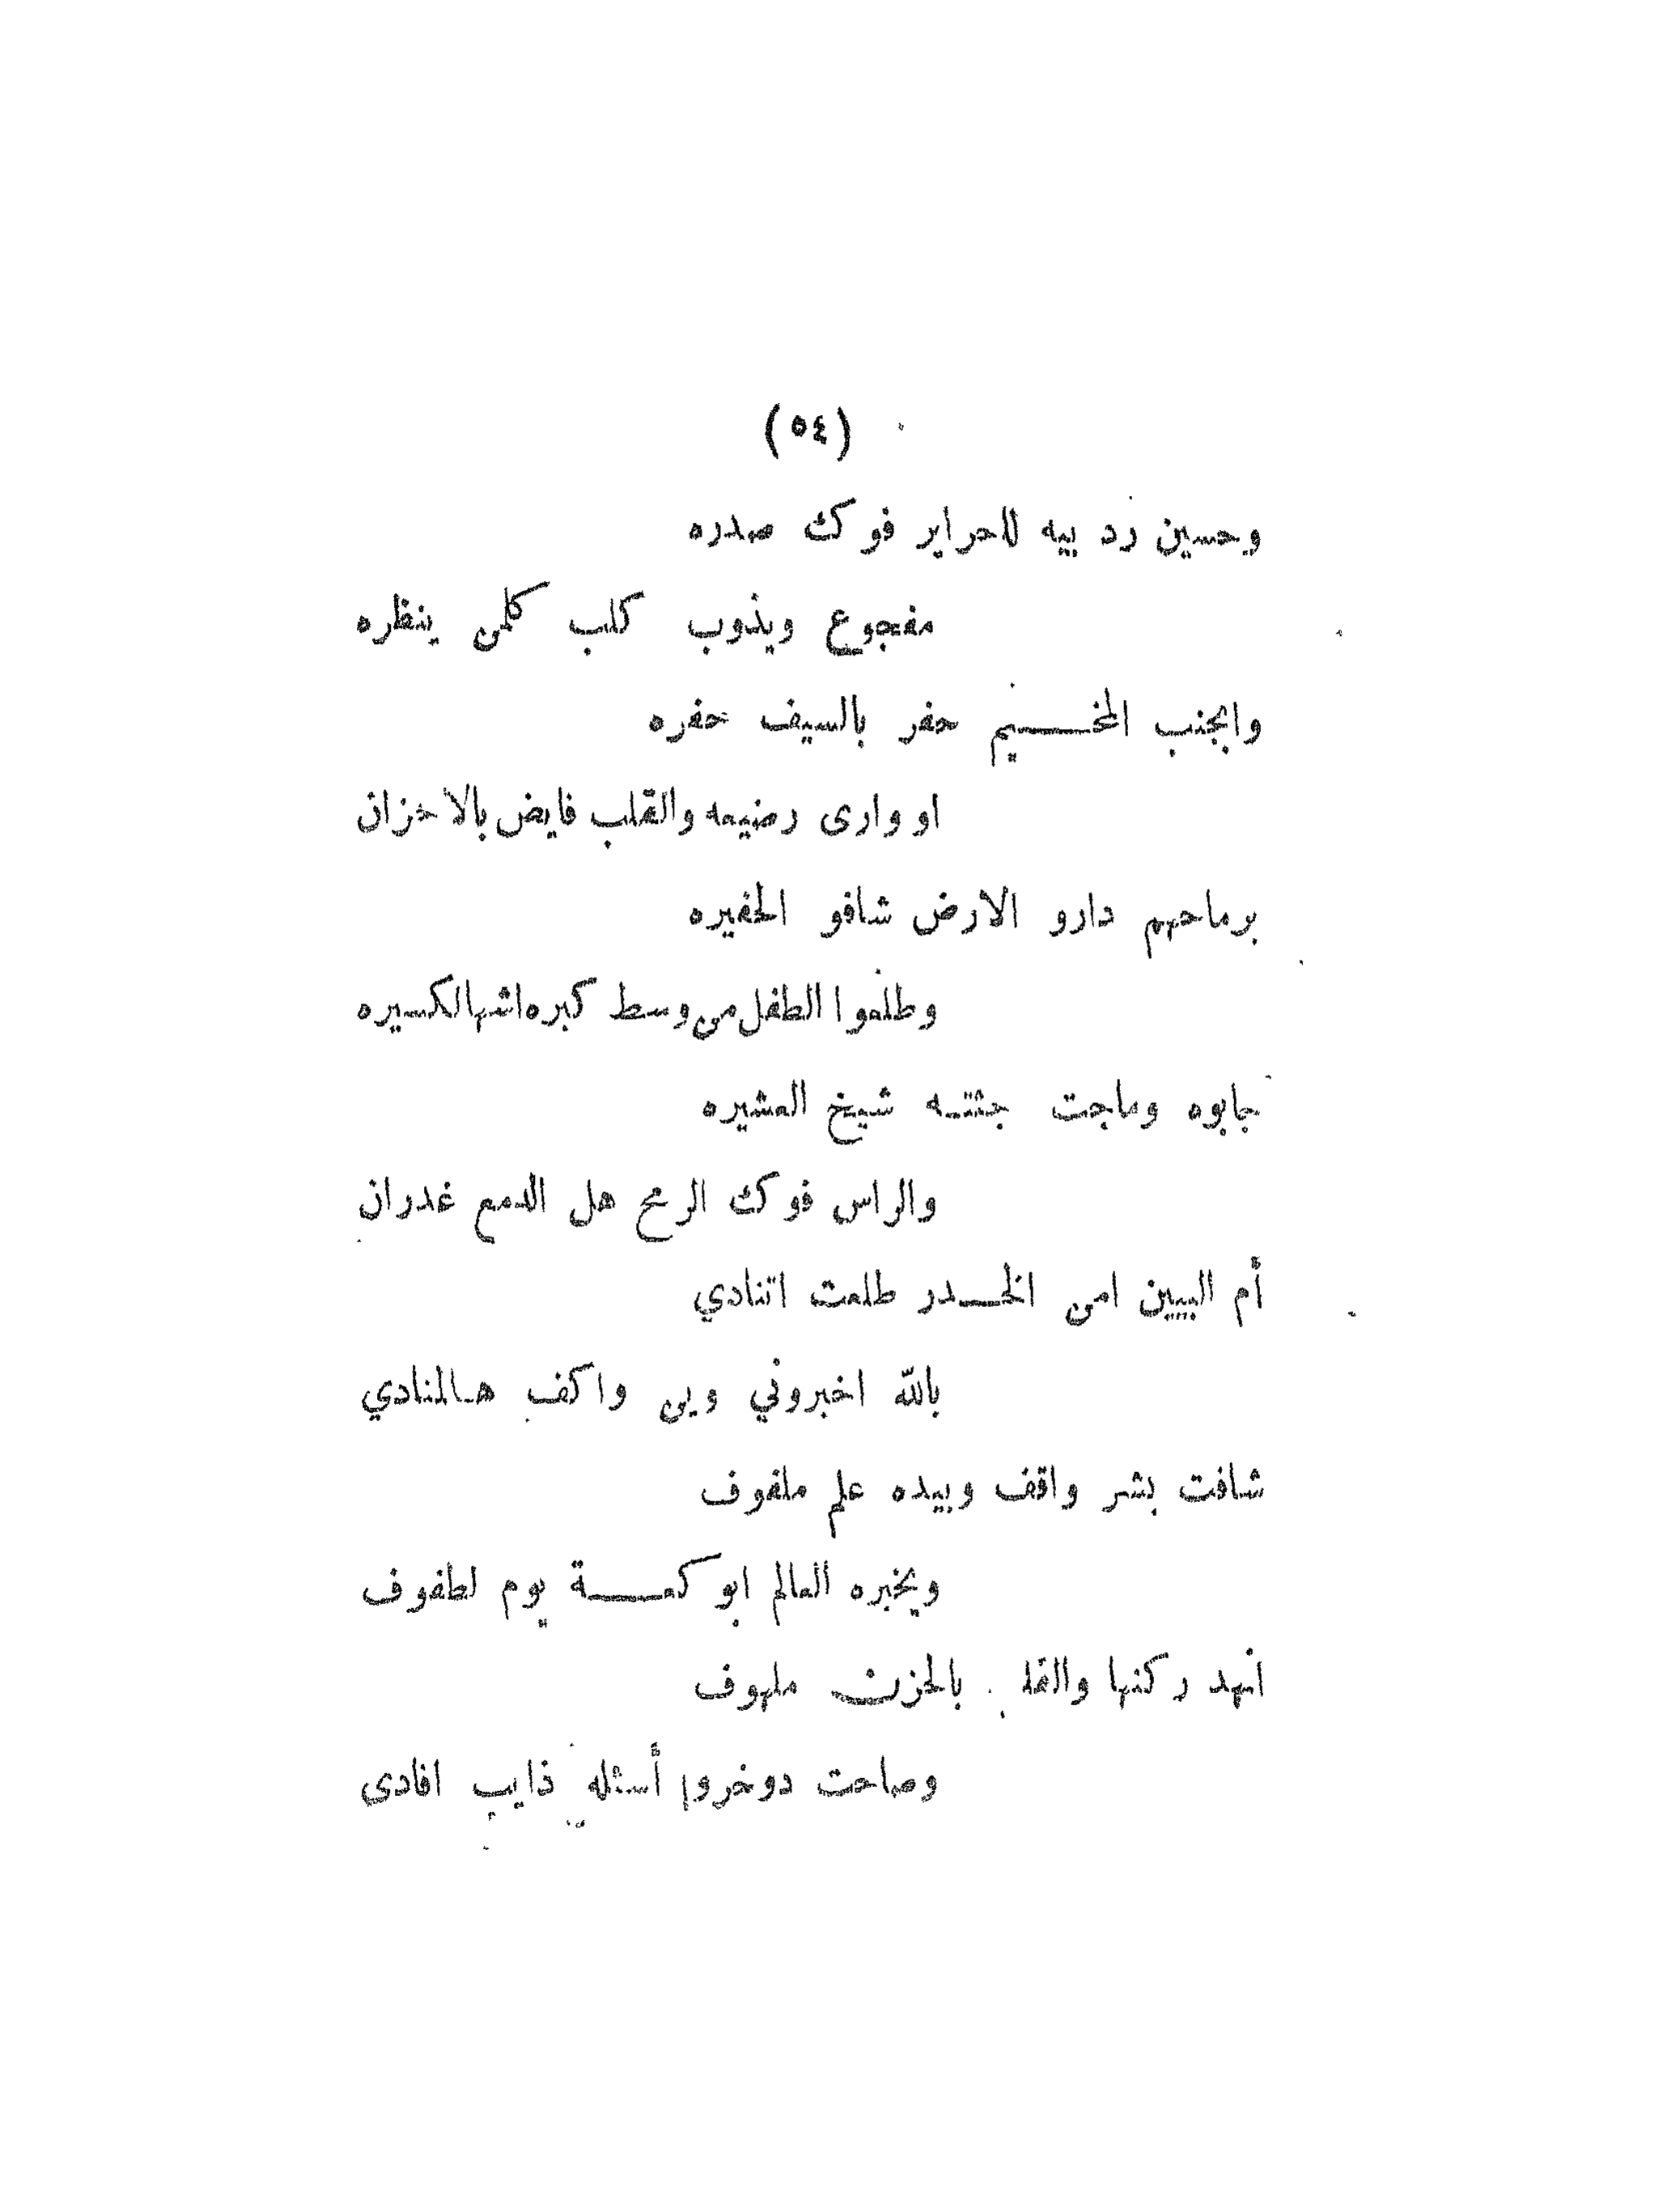 (٥٤)
وحسين رد بيه للاحراير فوكك صدره
مفجوع ويذوب كلب كلمن ينظره
وابجنب المخـــيم حفر بالسيف حفره
او وارى رضيعه والقلب فايض بالاحزان
برماحهم دارو الارض شافو الحفيره
وطلعوا الطفل من وسط كبره اشهالكسيره
جابوه وماجت جثتـه شيخ العشيره
والراس فوكك الرمح هل الدمع غدران
أم البيين امن الخـدر طلعت اتنادي
بالله اخبروني وين واكف هـالمنادي
شافت بشر واقف وبيده علم ملفوف
ويخبره العالم ابو كعـــة يوم لطفوف
انهد ركنها بالحزن ملهوف
وصاحت دوخروا أسئله ذايب افادى